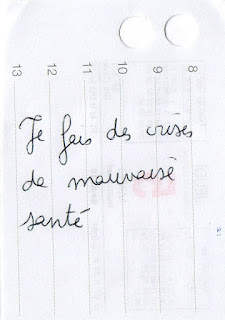 8
9
10
11
12
13
Je fais des crises
de mauvaise
santé